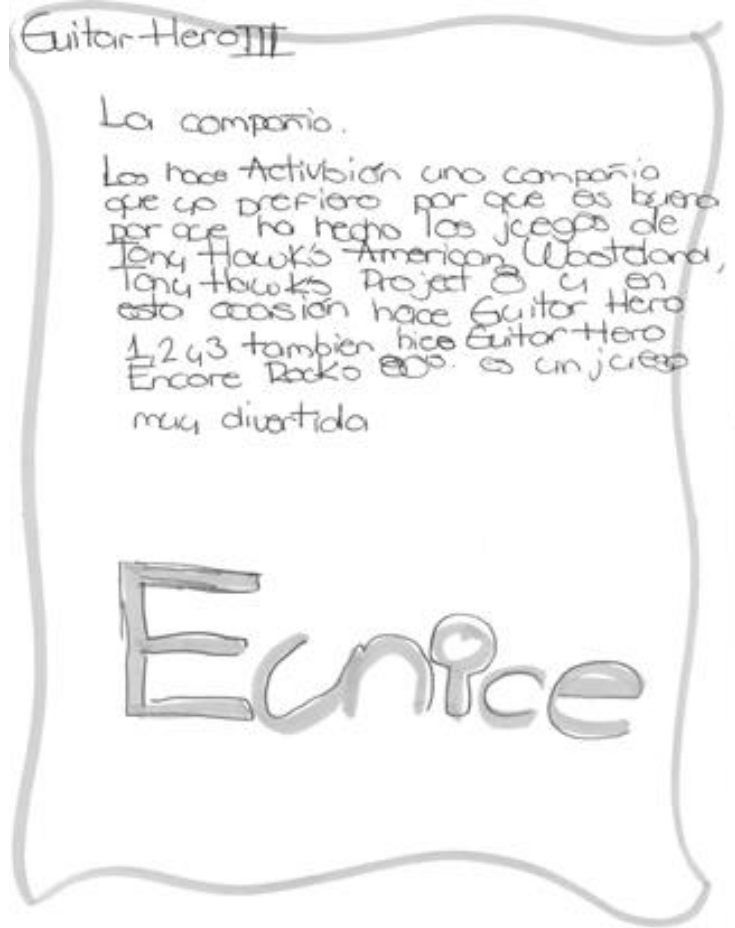 Guitar Hero III
La compañia.
Los hace Activisión una compañia
que yo prefiero por que es buena
por que ha hecho los juegos de
Tony Hawk's American Wasteland,
Tony Hawk's Project 8 y en
esta ocasión hace Guitar Hero
1,2 y 3 tambien hice Guitar Hero
Encore Rocks 80's. es un juego
muy divertido
Eunice